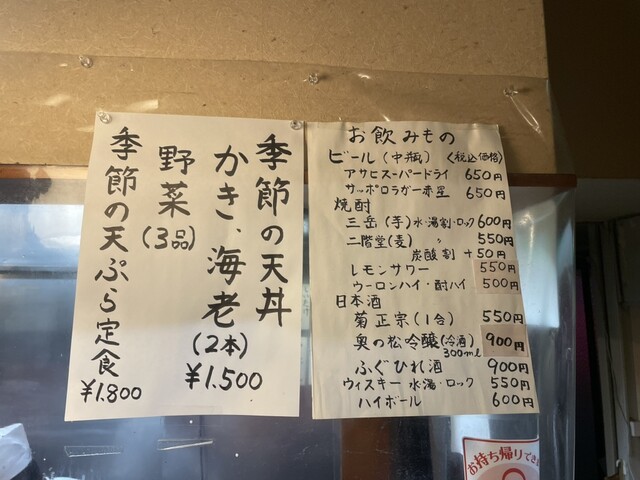 季節の天丼
かき、海老
(2本)
¥1.500
野菜
(3品)
季節の天ぷら定食
¥1.800
お飲みもの
ビール(中瓶)〈税込価格〉
アサヒスーパードライ 650円
サッポロラガー赤星 650円
焼酎
三岳(手)水・湯割・ロック 600円
二階堂(麦) 〃 550円
炭酸割 +50円
レモンサワー 550円
ウーロンハイ・酎ハイ 500円
日本酒
菊正宗(1合) 550円
奥の松吟醸(冷酒) 900円
300ml
ふぐひれ酒 900円
ウィスキー 水・湯・ロック 550円
ハイボール 600円
お持ち帰りでき